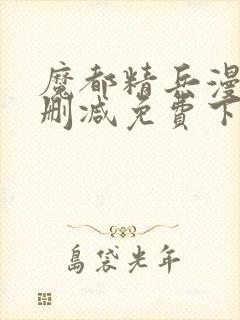 魔都精兵漫
删减免費下
島袋光年